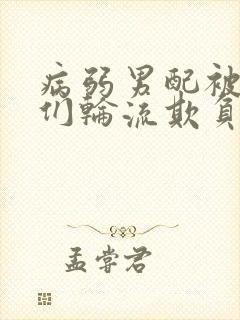 病弱男配被
们轮流欺负
孟尝君